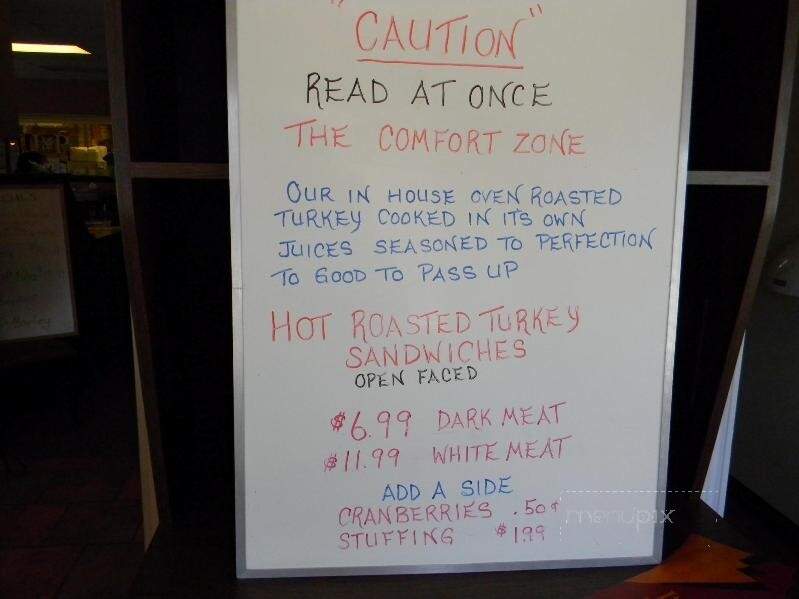 "CAUTION"
READ AT ONCE
THE COMFORT ZONE
OUR IN HOUSE OVEN ROASTED
TURKEY COOKED IN ITS OWN
JUICES SEASONED TO PERFECTION
TO GOOD TO PASS UP
HOT ROASTED TURKEY
SANDWICHES
OPEN FACED
$6.99 DARK MEAT
$11.99 WHITE MEAT
ADD A SIDE
CRANBERRIES .50¢
STUFFING $1.99
menupix